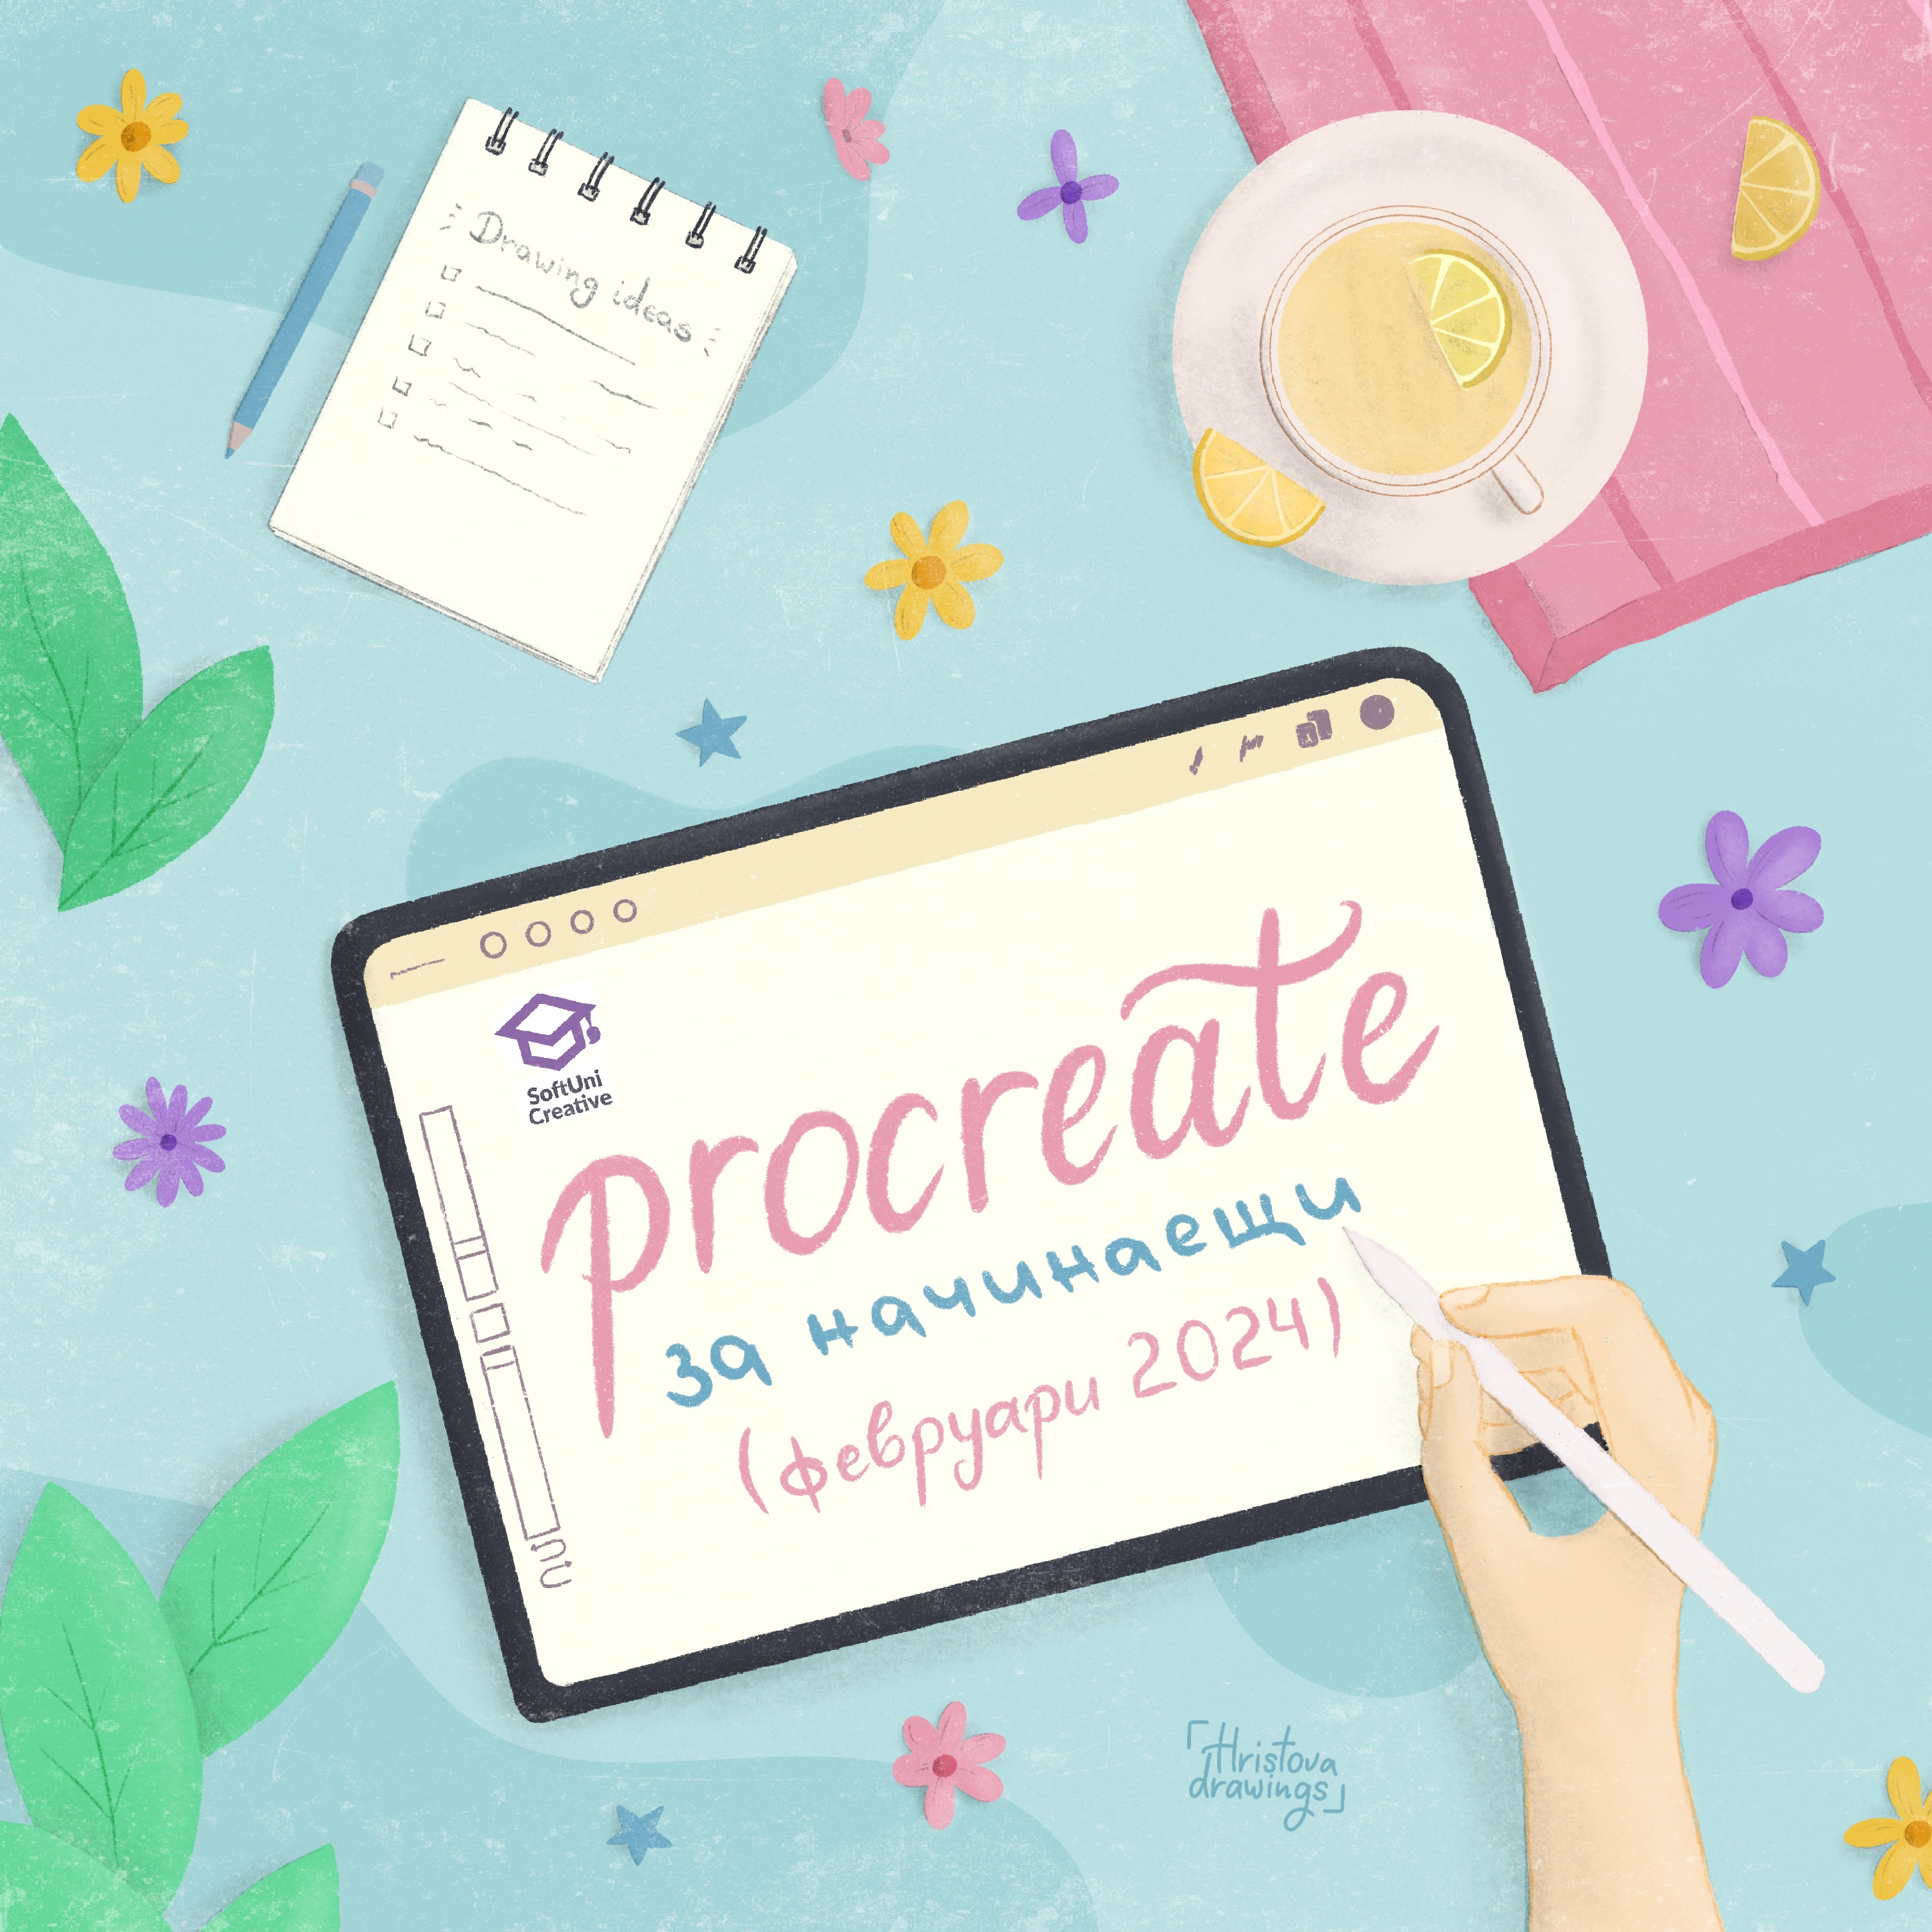 Drawing ideas
SoftUni
Creative
procreate
за начинаещи
(февруари 2024)
Hristova
drawings